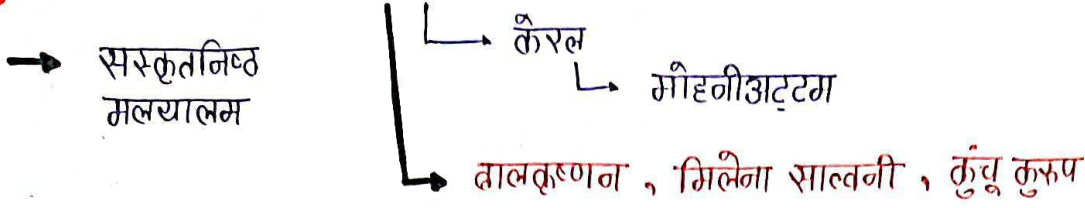 → सस्कृतनिष्ठ
मलयालम
केरल
मोहनीअट्टम
बालकृष्णन , मिलेना साल्वनी , कुंचू कुरुप